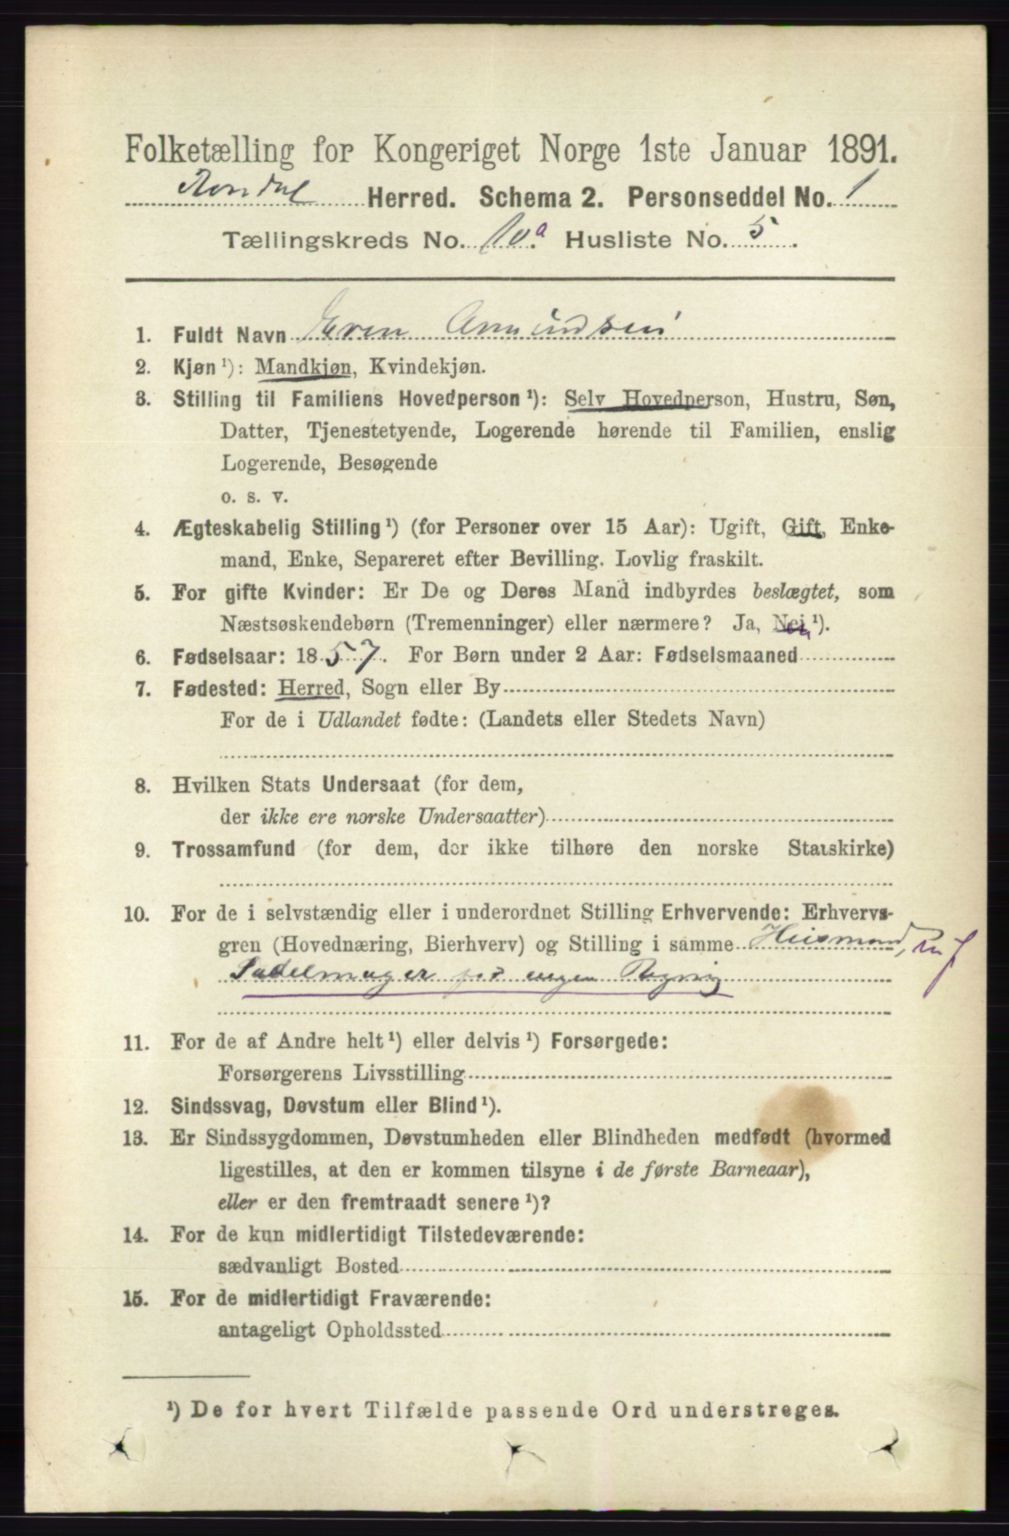 Folketælling for Kongeriget Norge 1ste Januar 1891.
Herred. Schema 2. Personseddel No. 1
Tællingskreds No. 10.a Husliste No. 5.
1. Fuldt Navn Even Amundsen
2. Kjøn ¹): Mandkjøn, Kvindekjøn.
3. Stilling til Familiens Hovedperson ¹): Selv Hovedperson, Hustru, Søn,
Datter, Tjenestetyende, Logerende hørende til Familien, enslig
Logerende, Besøgende
o. s. v.
4. Ægteskabelig Stilling ¹) (for Personer over 15 Aar): Ugift, Gift, Enke-
mand, Enke, Separeret efter Bevilling. Lovlig fraskilt.
5. For gifte Kvinder: Er De og Deres Mand indbyrdes beslægtet, som
Næstsøskendebørn (Tremenninger) eller nærmere? Ja, Nei ¹).
6. Fødselsaar: 1857. For Børn under 2 Aar: Fødselsmaaned
7. Fødested: Herred, Sogn eller By
For de i Udlandet fødte: (Landets eller Stedets Navn)
8. Hvilken Stats Undersaat (for dem,
der ikke ere norske Undersaatter)
9. Trossamfund (for dem, der ikke tilhøre den norske Statskirke)
10. For de i selvstændig eller i underordnet Stilling Erhvervende: Erhvervs-
gren (Hovednæring, Bierhverv) og Stilling i samme Husmand, m J
Sadelmager for egen Regning
11. For de af Andre helt ¹) eller delvis ¹) Forsørgede:
Forsørgerens Livsstilling
12. Sindssvag, Døvstum eller Blind ¹).
13. Er Sindssygdommen, Døvstumheden eller Blindheden medfødt (hvormed
ligestilles, at den er kommen tilsyne i de første Barneaar),
eller er den fremtraadt senere ¹)?
14. For de kun midlertidigt Tilstedeværende:
sædvanligt Bosted
15. For de midlertidigt Fraværende:
antageligt Opholdssted
¹) De for hvert Tilfælde passende Ord understreges.